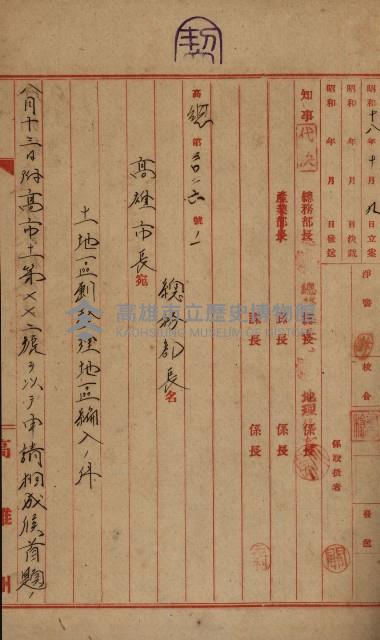 契
昭和十八年十月九日立案
昭和 年 月 日決裁
昭和 年 月 日發送
淨書
校合
發送
係取扱者
知事
代
總務部長
產業部長
課長
課長
課長
地理係長
係長
係長
高總第 號ノ一
高雄市長宛
總務部長名
土地區劃整理地區編入ノ件
八月十三日附高市土第××號ヲ以テ申請相成候首題ノ
高雄州
高雄市立歷史博物館
KAOHSIUNG MUSEUM OF HISTORY